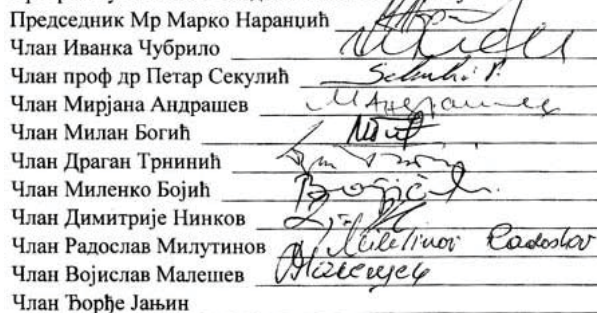 Председник Мр Марко Наранџић
Члан Иванка Чубрило
Члан проф др Петар Секулић Sekulić P.
Члан Мирјана Андрашев
Члан Милан Богић
Члан Драган Трнинић
Члан Миленко Бојић
Члан Димитрије Нинков
Члан Радослав Милутинов Milutinov Radoslov
Члан Војислав Малешев
Члан Ђорђе Јањин